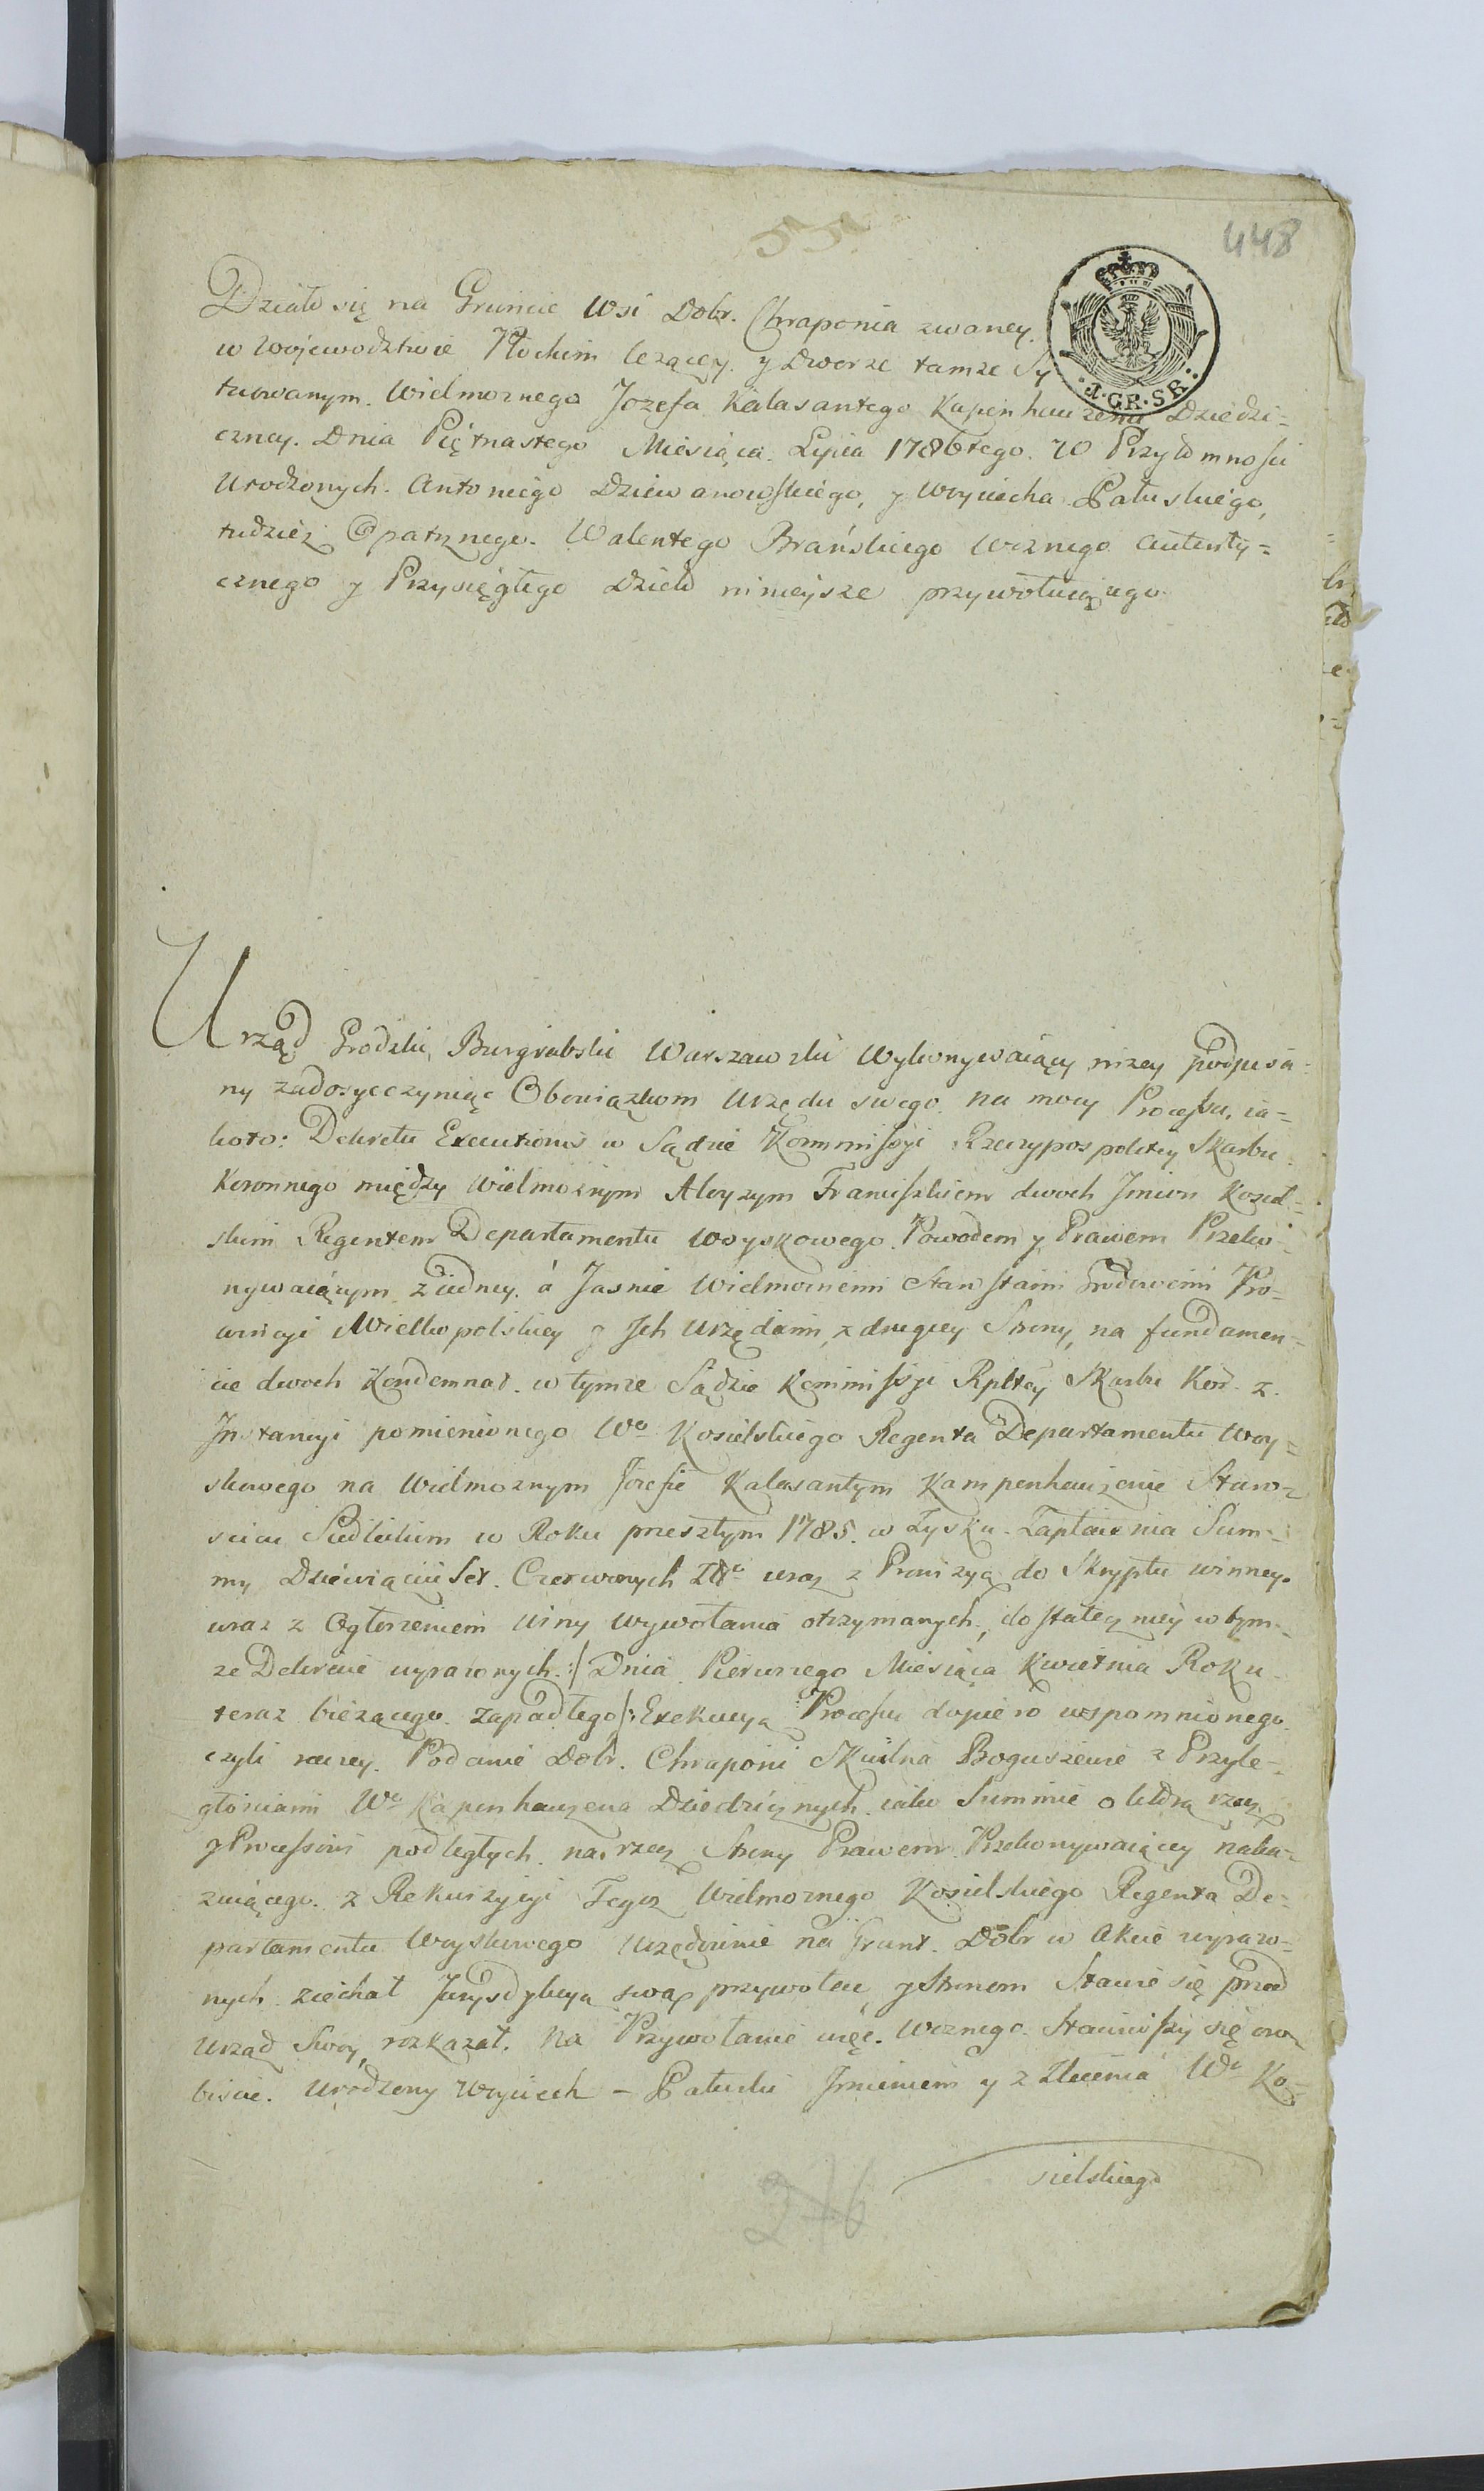 448
Działo się na Gruncie Wsi Dobr. Chraponia zwaney.
w Wojewodztwie Płockim leżącey. y Dworze tamze Sy
tuowanym. Wielmoznego Jozefa Kalasantego Kapenhauzena Dziedzi-
czney. Dnia Piętnastego Miesiąca. Lipca 1786tego. w Przytomnosci
Urodzonych. Antoniego Dziewanowskiego, y Woyciecha Pałuskiego,
tudziez Opatrznego. Walentego Brańskiego Woznego autenty=
cznego y Przysięgłego Dzieło nineysze przywołuiącego.
1.GR.SR.
Urząd Grodzki, Burgrabski Warszawski Wykonywaiący nizey podpisa-
ny zadosycczyniąc Obowiązkom Urzędu swego. na mocy Processu, ia-
koto: Dekretu Executionis w Sądzie Kommissyi Rzeczypospolitey Skarbu
Koronnego między Wielmożnym Aloyzym Franciszkiem dwoch Jmion Kosiel-
skim Regentem Departamentu Woyskowego. Powodem y Prawem Przeko-
nywaiącym z iedney. á Jasnie Wielmoznemi Starostami Grodowemi Pro-
wincyi Wielkopolskiey y Jch Urzędami, z drugiey Strony, na fundamen-
cie dwoch Kondemnat. w tymze Sądzie Kommissyi Rpltey Skarbu Kor. z.
Jnstancyi pomienionego Wo Kosielskiego Regenta Departamentu Woy=
skowego na Wielmoznym Jozefie Kalasantym Kampenhauzenie Staro-
scicu Siedleckim w Roku przeszłym 1785. w Zysku. Zapłacenia Sum-
my Dziewięciuset. Czerwonych Złch wraz z Prowizyą do Skryptu winney.
wraz z Ogłoszeniem winy wywołania otrzymanych, dostateczniey w tym-
ze Dekrecie wyrazonych.:/ Dnia Pierwszego Miesiąca Kwietnia Roku
teraz biezącego. zapadłego /: Exekucyą Processu dopiero wspomnionego.
czyli raczey. Podanie Dobr. Chraponi Skuilna Boguszewie z Przyle-
głościami Wo Kapenhauzena Dziedzicznych. iako Summie o którą rzecz
y Processowi podległych. na rzecz Strony Prawem Przekonywaiącey naka-
zuiącego. z Rekwizycyi Tegoz Wielmoznego Kosielskiego Regenta De-
partamentu Woyskowego Urzędownie na Grunt. Dobr w Akcie wyraźo-
nych ziechał Jurysdykcyą swą przywołał y Stronom Stawić się przed
Urząd Swoy rozkazał. Na Przywołanie więc. Woznego. Stawiwszy się oso-
biscie. Urodzony Woyciech - Pałuski Jmieniem y z Zlecenia Wo Ko-
sielskiego